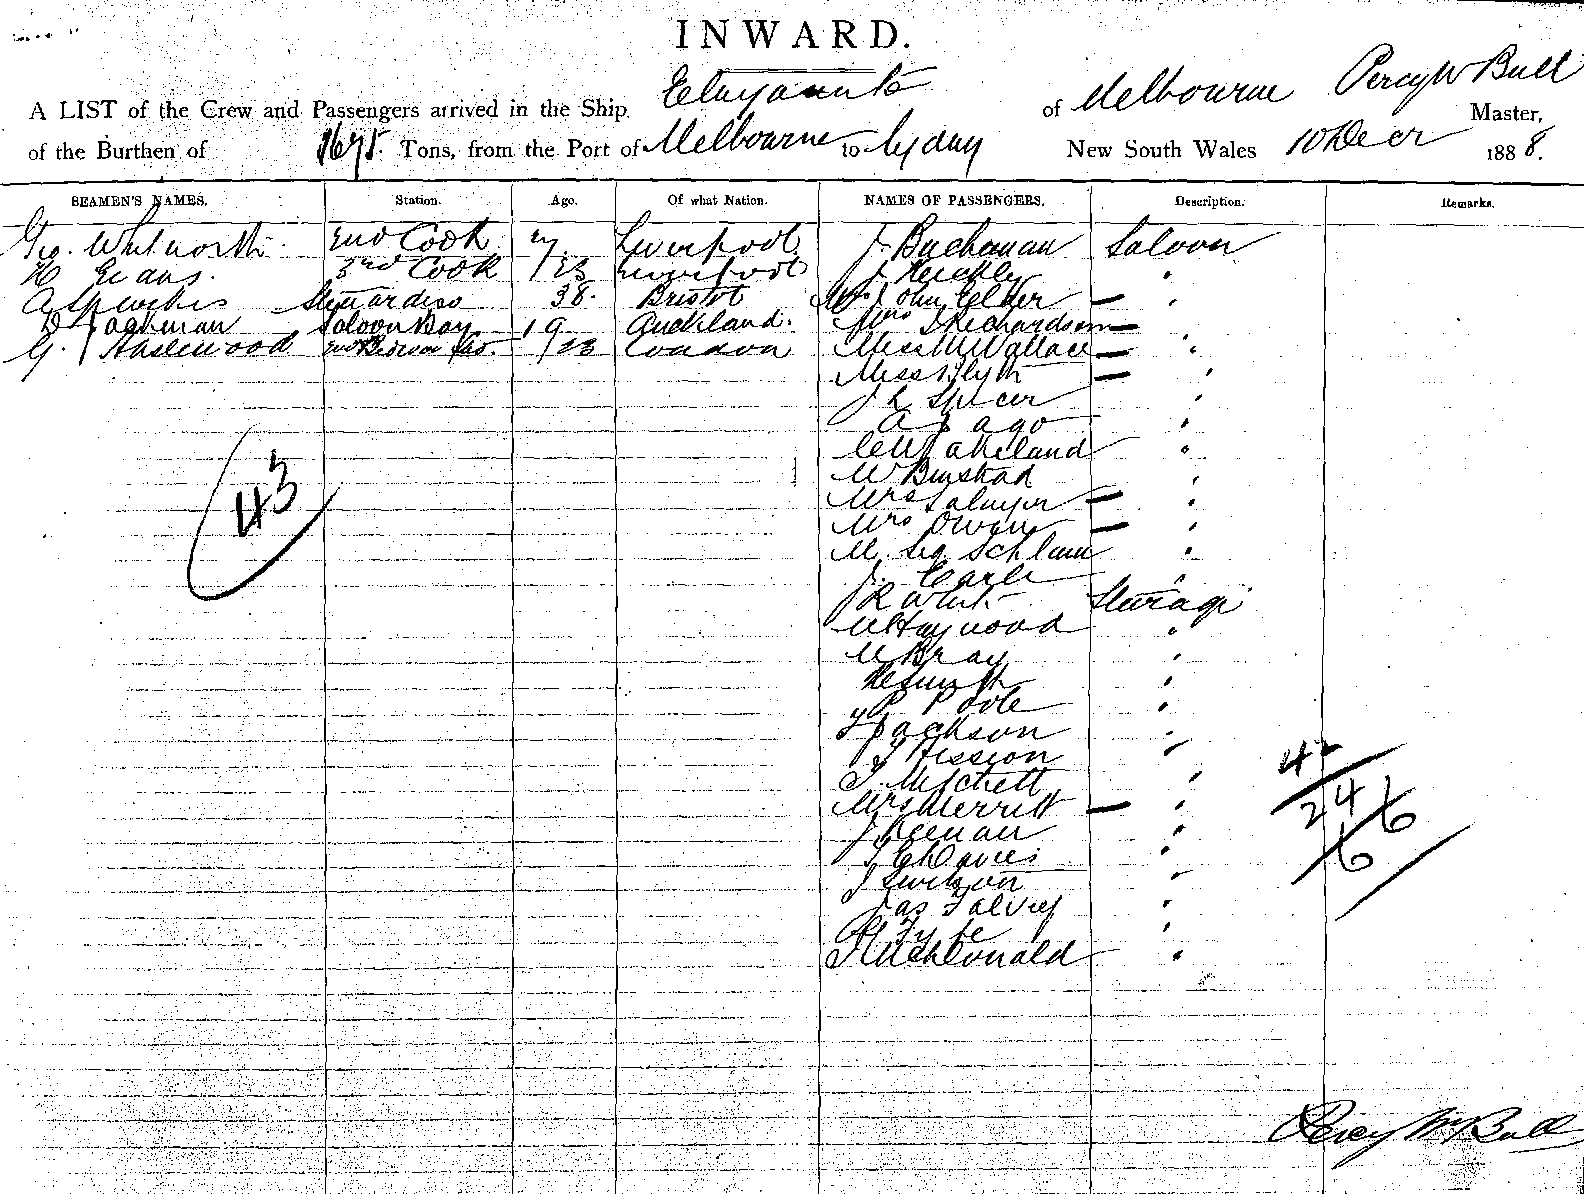 INWARD.
A LIST of the Crew and Passengers arrived in the Ship of Melbourne Percy W Bull Master,
of the Burthen of 1675 Tons, from the Port of Melbourne to Sydney New South Wales 10 Decr 1888.
SEAMEN'S NAMES. Station. Age. Of what Nation. NAMES OF PASSENGERS. Description. Remarks.
Geo. Whitworth 2nd Cook 27 Liverpool J. Buchanan Saloon
H Evans. 3rd Cook 23 Liverpool J "
A Stewardess 38. Bristol Mrs John Elder — "
D Jackman Saloon Boy 19 Auckland. Mrs Richardson —
G. Haslewood 23 London Miss M Wallace — "
Miss Blyth — "
J L Spicer "
A Jago "
C W Wakeland "
W Binstead "
Mrs — "
Mrs Owen — "
M. "
J. Earle "
J R White Steerage
W Haywood "
W Bray "
"
P Poole "
J Jackson "
J Hession "
J. Mitchell "
Mrs Merritt — "
J Keenan "
J E Davies "
J "
Jas Falvey "
Fyfe "
J MacDonald "
43
42
24/6
/6
Percy W Bull